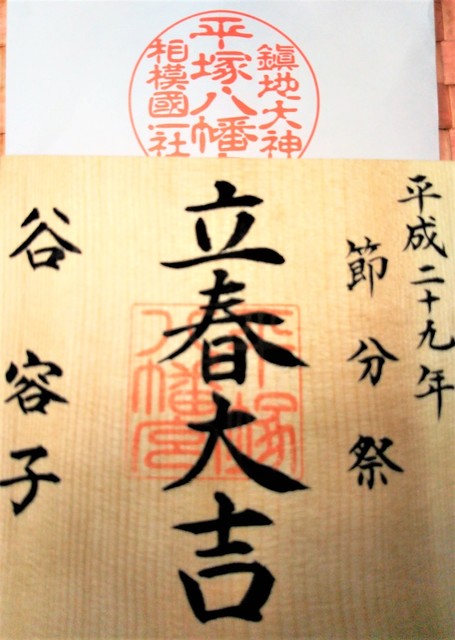 鎮地大神
平塚八幡
相模國一社
平成二十九年
節分祭
立春大吉
平塚
八幡宮
谷容子